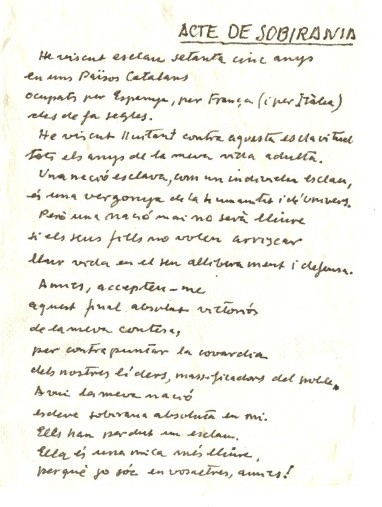 ACTE DE SOBIRANIA
He viscut esclau setanta cinc anys
en uns Països Catalans
ocupats per Espanya, per França (i per Itàlia)
des de fa segles.
He viscut lluitant contra aquesta esclavitud
tots els anys de la meva vida adulta.
Una nació esclava, com un individu esclau,
és una vergonya de la humanitat i d'Univers.
Però una nació mai no serà lliure
si els seus fills no volen arriscar
llur vida en el seu alliberament i defensa.
Amics, accepteu-me
aquest final absolut victoriós
de la meva contesa,
per contrapuntar la covardia
dels nostres líders, massificadors del poble.
Avui la meva nació
esdevé sobirana absoluta en mi.
Ells han perdut un esclau.
Ella és una mica més lliure,
perquè jo sóc en vosaltres, amics!